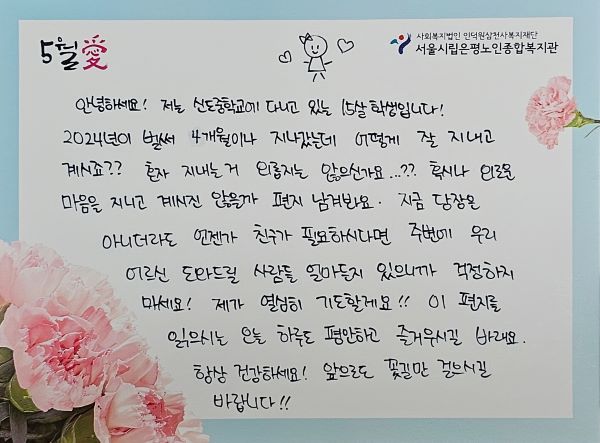 5월愛
사회복지법인 인덕원삼천사복지재단
서울시립은평노인종합복지관
안녕하세요! 저는 신도중학교에 다니고 있는 15살 학생입니다!
2024년이 벌써 4개월이나 지나갔는데 어떻게 잘 지내고
계시죠?? 혼자 지내는거 외롭지는 않으신가요...?? 혹시나 외로운
마음을 지니고 계시진 않을까 편지 남겨봐요. 지금 당장은
아니더라도 언젠가 친구가 필요하시다면 주변에 우리
어르신 도와드릴 사람들 얼마든지 있으니까 걱정하지
마세요! 제가 열심히 기도할게요!! 이 편지를
읽으시는 오늘 하루도 편안하고 즐거우시길 바래요.
항상 건강하세요! 앞으로도 꽃길만 걸으시길
바랍니다!!